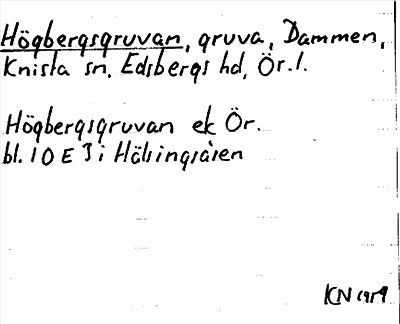 Högbergsgruvan, gruva, Dammen,
Knista sn, Edsbergs hd, Ör. l.
Högbergsgruvan ek Ör.
bl. 10 E 3 i Hälsingsåsen
KN